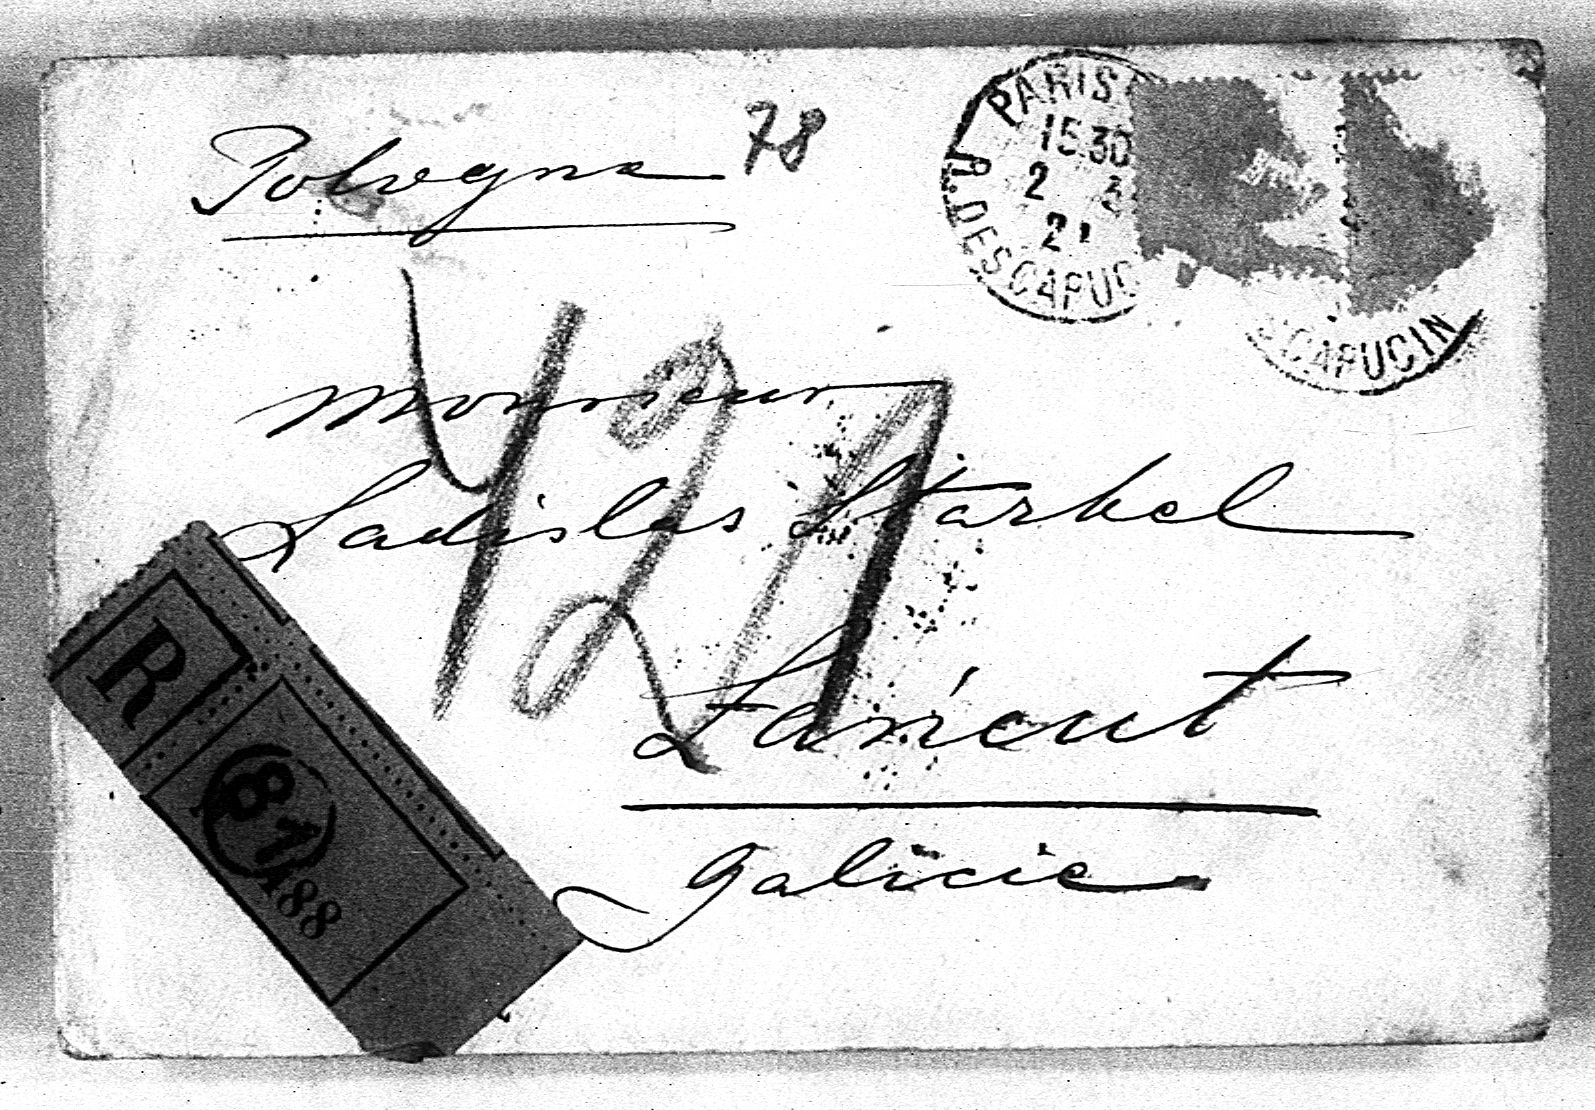 Pologne 78
PARIS
15 30
2 3
21
R. DES CAPUC
CAPUCIN
421
Monsieur
Ladislas Starkel
Łańcut
Galicie
R
81
188